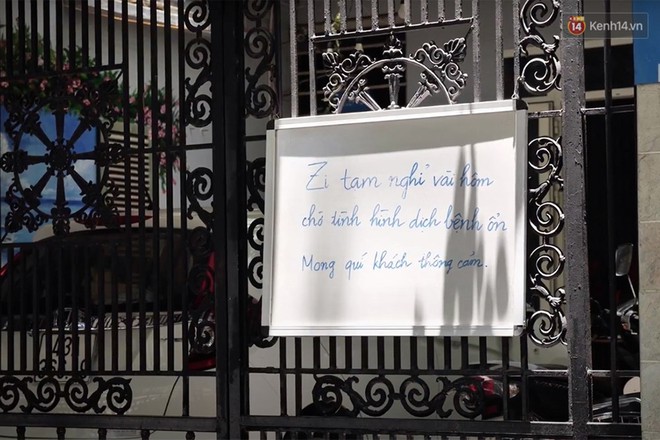 14 Kenh14.vn
Zi tạm nghỉ vài hôm
chờ tình hình dịch bệnh ổn
Mong quí khách thông cảm.